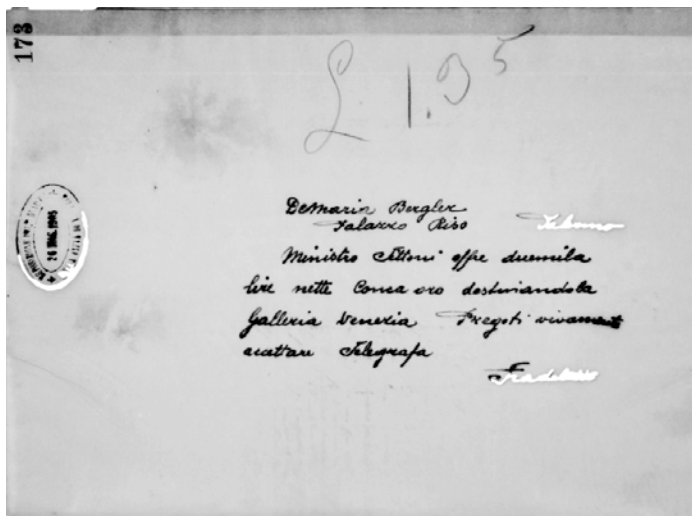 173
£ 1.95
DeMaria Bergler
Palazzo Riso Palermo
Ministro offre duemila
lire nette Conca oro destinandola
Galleria Venezia Pregoti vivament
accettare Telegrafa
Fradeletto